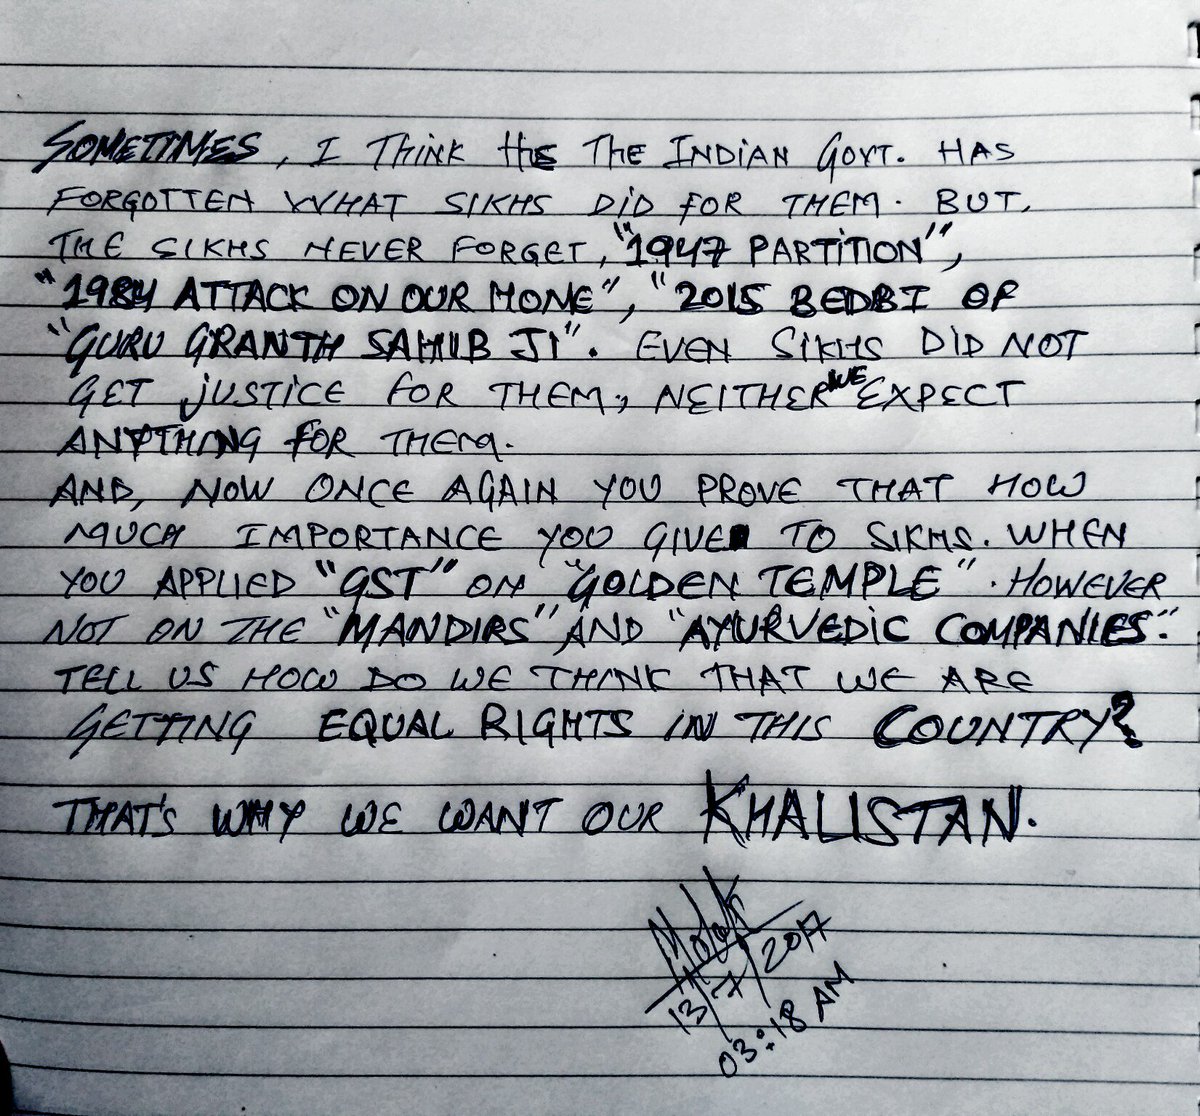 SOMETIMES, I THINK THE INDIAN GOVT. HAS
FORGOTTEN WHAT SIKHS DID FOR THEM. BUT,
THE SIKHS NEVER FORGET, "1947 PARTITION",
"1984 ATTACK ON OUR HOME", "2015 BEDBI OF
"GURU GRANTH SAHIB JI". EVEN SIKHS DID NOT
GET JUSTICE FOR THEM, NEITHER WE EXPECT
ANYTHING FOR THEM.
AND, NOW ONCE AGAIN YOU PROVE THAT HOW
MUCH IMPORTANCE YOU GIVE TO SIKHS. WHEN
YOU APPLIED "GST" ON "GOLDEN TEMPLE". HOWEVER
NOT ON THE "MANDIRS" AND "AYURVEDIC COMPANIES".
TELL US HOW DO WE THINK THAT WE ARE
GETTING EQUAL RIGHTS IN THIS COUNTRY?
THAT'S WHY WE WANT OUR KHALISTAN.
13/7/2017
03:18 AM